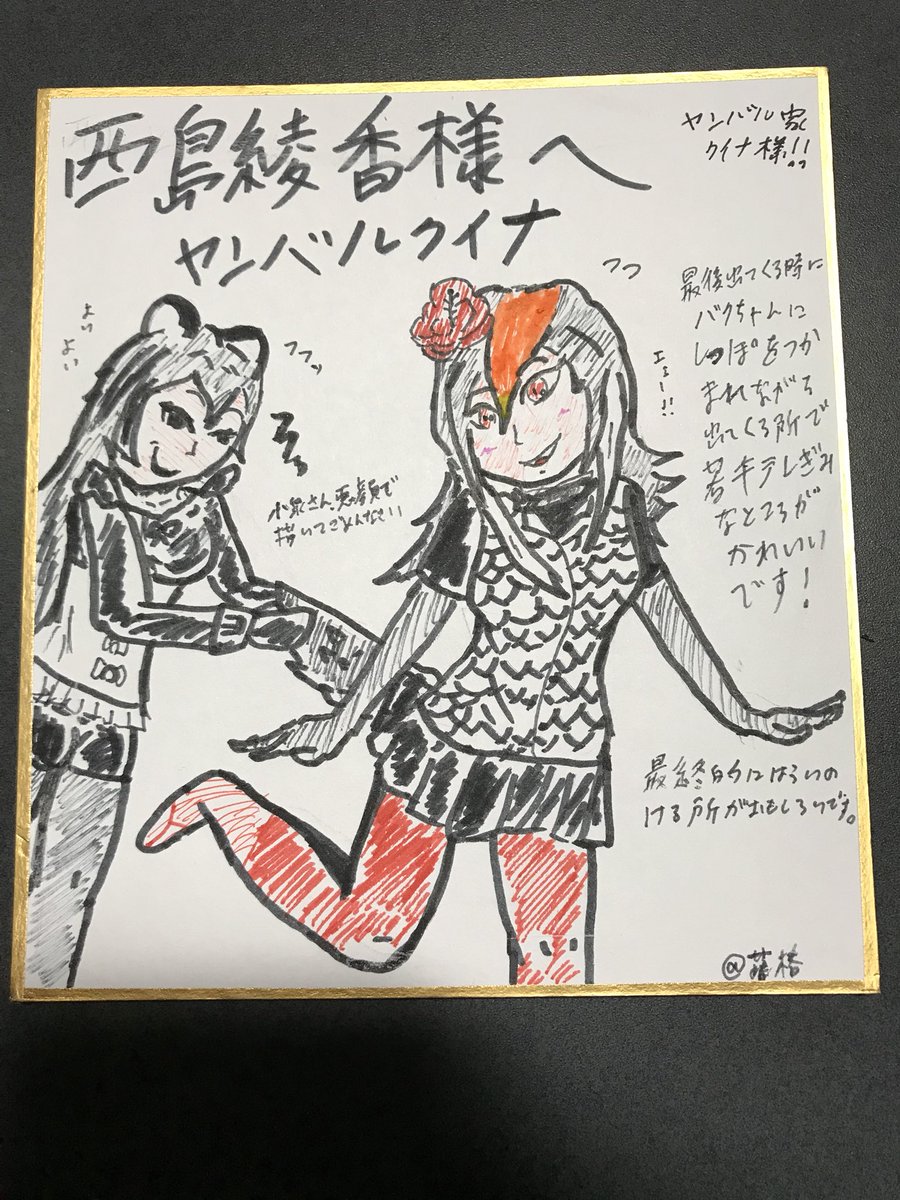 西島綾香様へ
ヤンバルクイナ
ヤンバル
クイナ様!!
最後出てくる時に
バクちゃんに
しっぽをつか
まれながら
出てくる所で
若干テレぎみ
なところが
かわいい
です!
よい
よい
フフッ
フフ
小泉さん悪顔で
描いてごめんなさい
最終的にはらいの
ける所がおもしろいです。
@藤椿